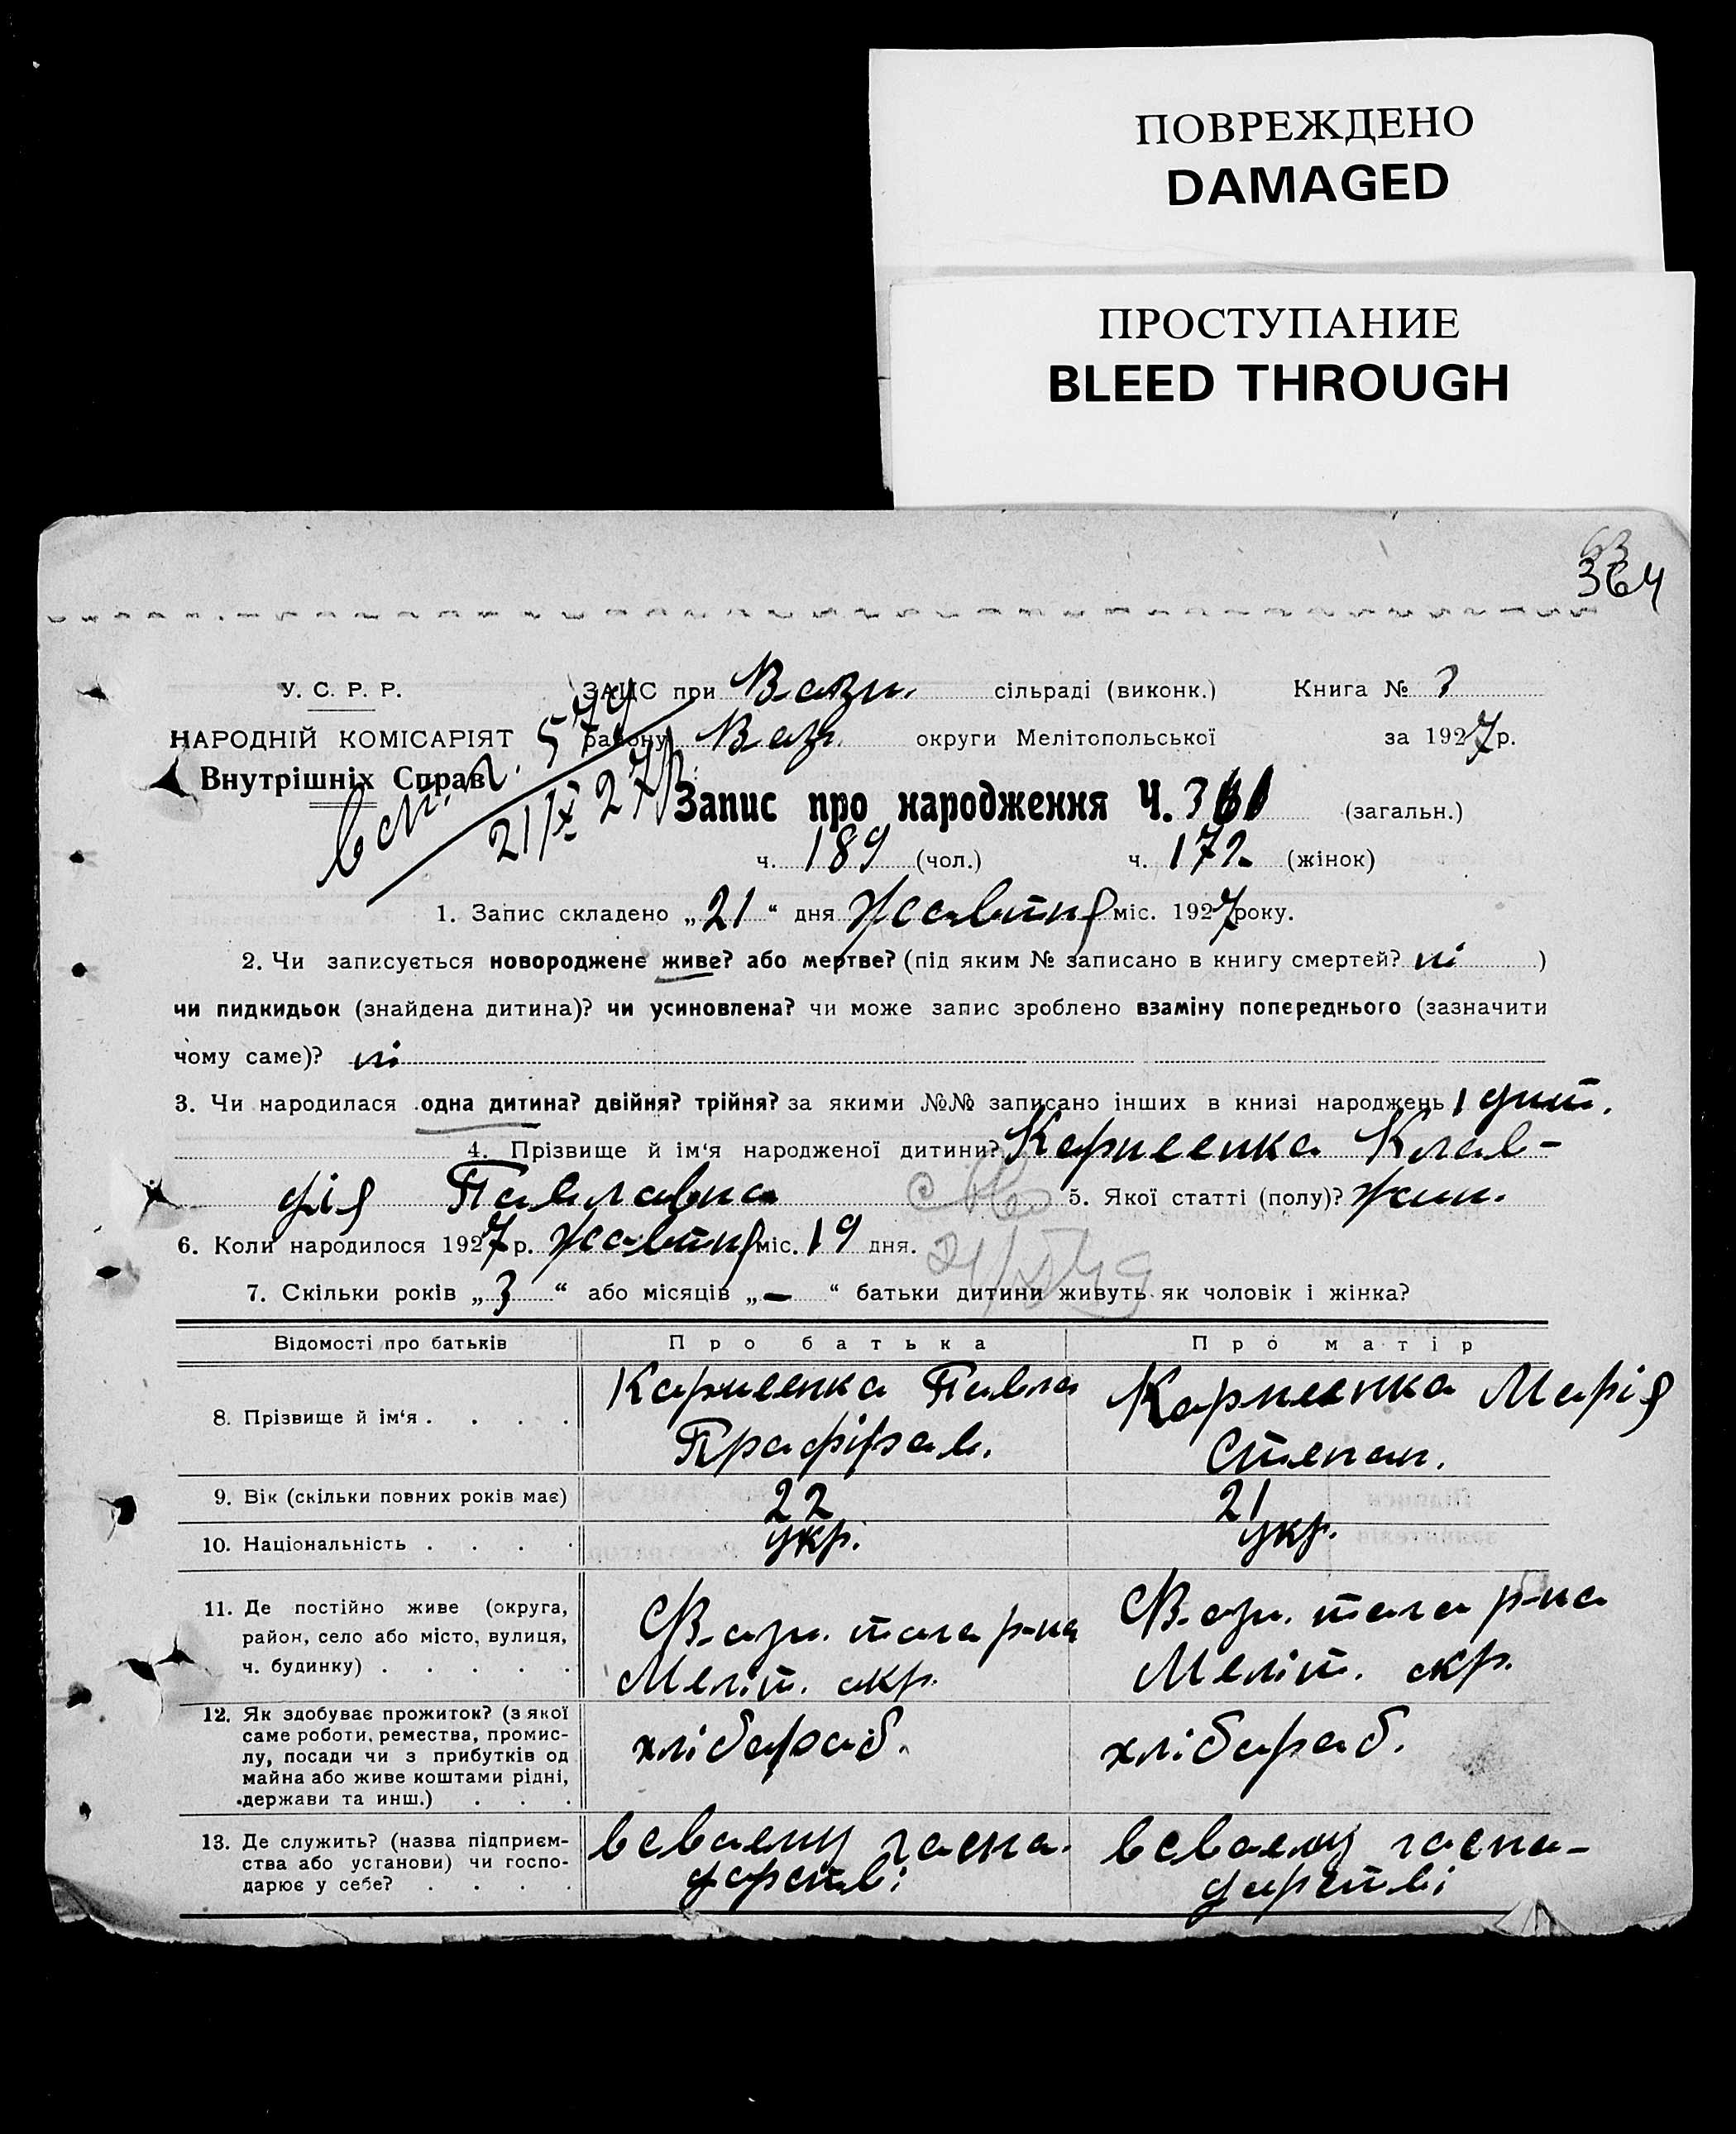 ПОВРЕЖДЕНО
DAMAGED
ПРОСТУПАНИЕ
BLEED THROUGH
63
364
У. С. Р. Р.
ЗАЦС при Вози. сільраді (виконк.) Книга № 3
НАРОДНІЙ КОМІСАРІЯТ
району Воз. округи Мелітопольської за 1927 р.
Внутрішніх Справ
574
21/X 27 р.
Запис про народження Ч. 361 (загальн.)
ч. 189 (чол.) ч. 172 (жінок)
1. Запис складено „21“ дня Жовтня міс. 1927 року.
2. Чи записується новороджене живе? або мертве? (під яким № записано в книгу смертей? ні )
чи пидкидьок (знайдена дитина)? чи усиновлена? чи може запис зроблено взаміну попереднього (зазначити
чому саме)? ні
3. Чи народилася одна дитина? двійня? трійня? за якими №№ записано інших в книзі народжень 1 дит.
4. Прізвище й ім‘я народженої дитини? Карпеенко Клав-
дія Павловна 5. Якої статті (полу)? жин.
6. Коли народилося 1927 р. Жовтня міс. 19 дня.
7. Скільки років „3“ або місяців „—“ батьки дитини живуть як чоловік і жінка?
Відомості про батьків Про батька Про матір
8. Прізвище й ім‘я . . . . Карпеенко Павло Карпеенко Марія
Профіров. Степан.
9. Вік (скільки повних років має) 22 21
10. Національність . . . . укр. укр.
11. Де постійно живе (округа, район, село або місто, вулиця, ч. будинку) . . . . . того р-на того р-на
Меліт. окр. Меліт. окр.
12. Як здобуває прожиток? (з якої саме роботи, ремества, промислу, посади чи з прибутків од майна або живе коштами рідні, держави та инш.) . . . хлібороб. хлібороб.
13. Де служить? (назва підприємства або установи) чи господарює у себе? . . . . в своему госпо- в своему госпо-
дарстві дарстві